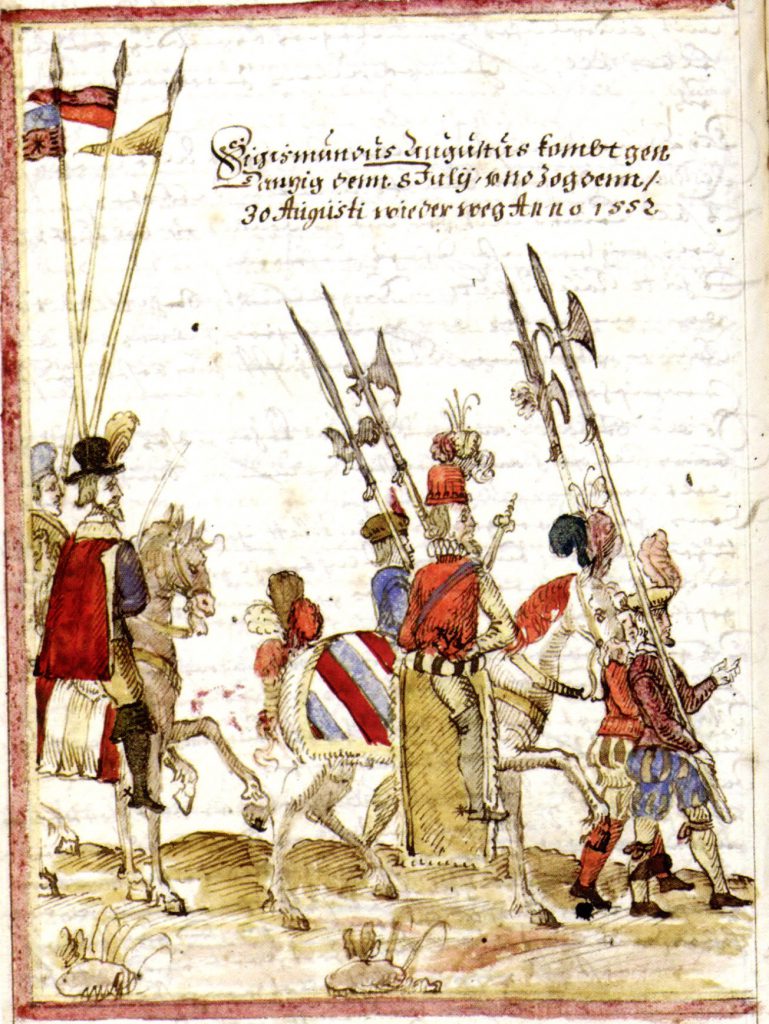 Sigismundus Augustus kombt gen
Danzig denn 8 Julij, vnd zog denn /
30 Augusti wieder weg Anno 1552